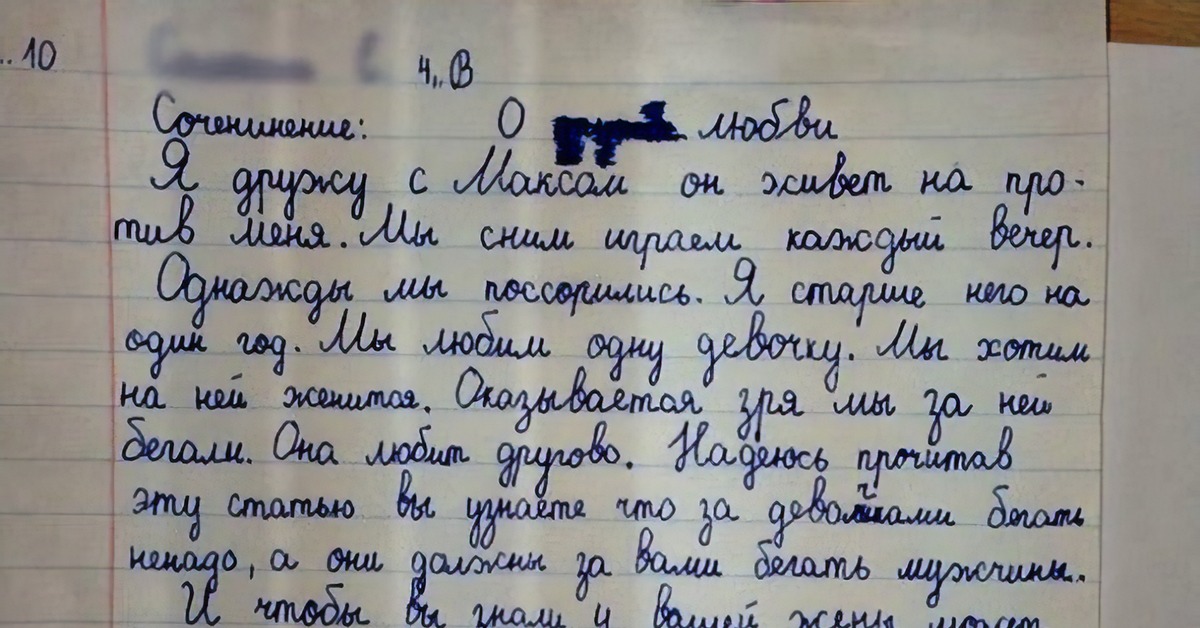 ..10
4„В
Сочениненние: О любви
Я дружу с Максом он живет на про-
тив меня. Мы сним играем каждый вечер.
Однажды мы поссорились. Я старше него на
один год. Мы любим одну девочку. Мы хотим
на ней женится. Оказывается зря мы за ней
бегали. Она любит другово. Надеюсь прочитав
эту статью вы узнаете что за девочками бегать
ненадо, а они должны за вами бегать мужчины.
И чтобы вы знали и вашей жены может